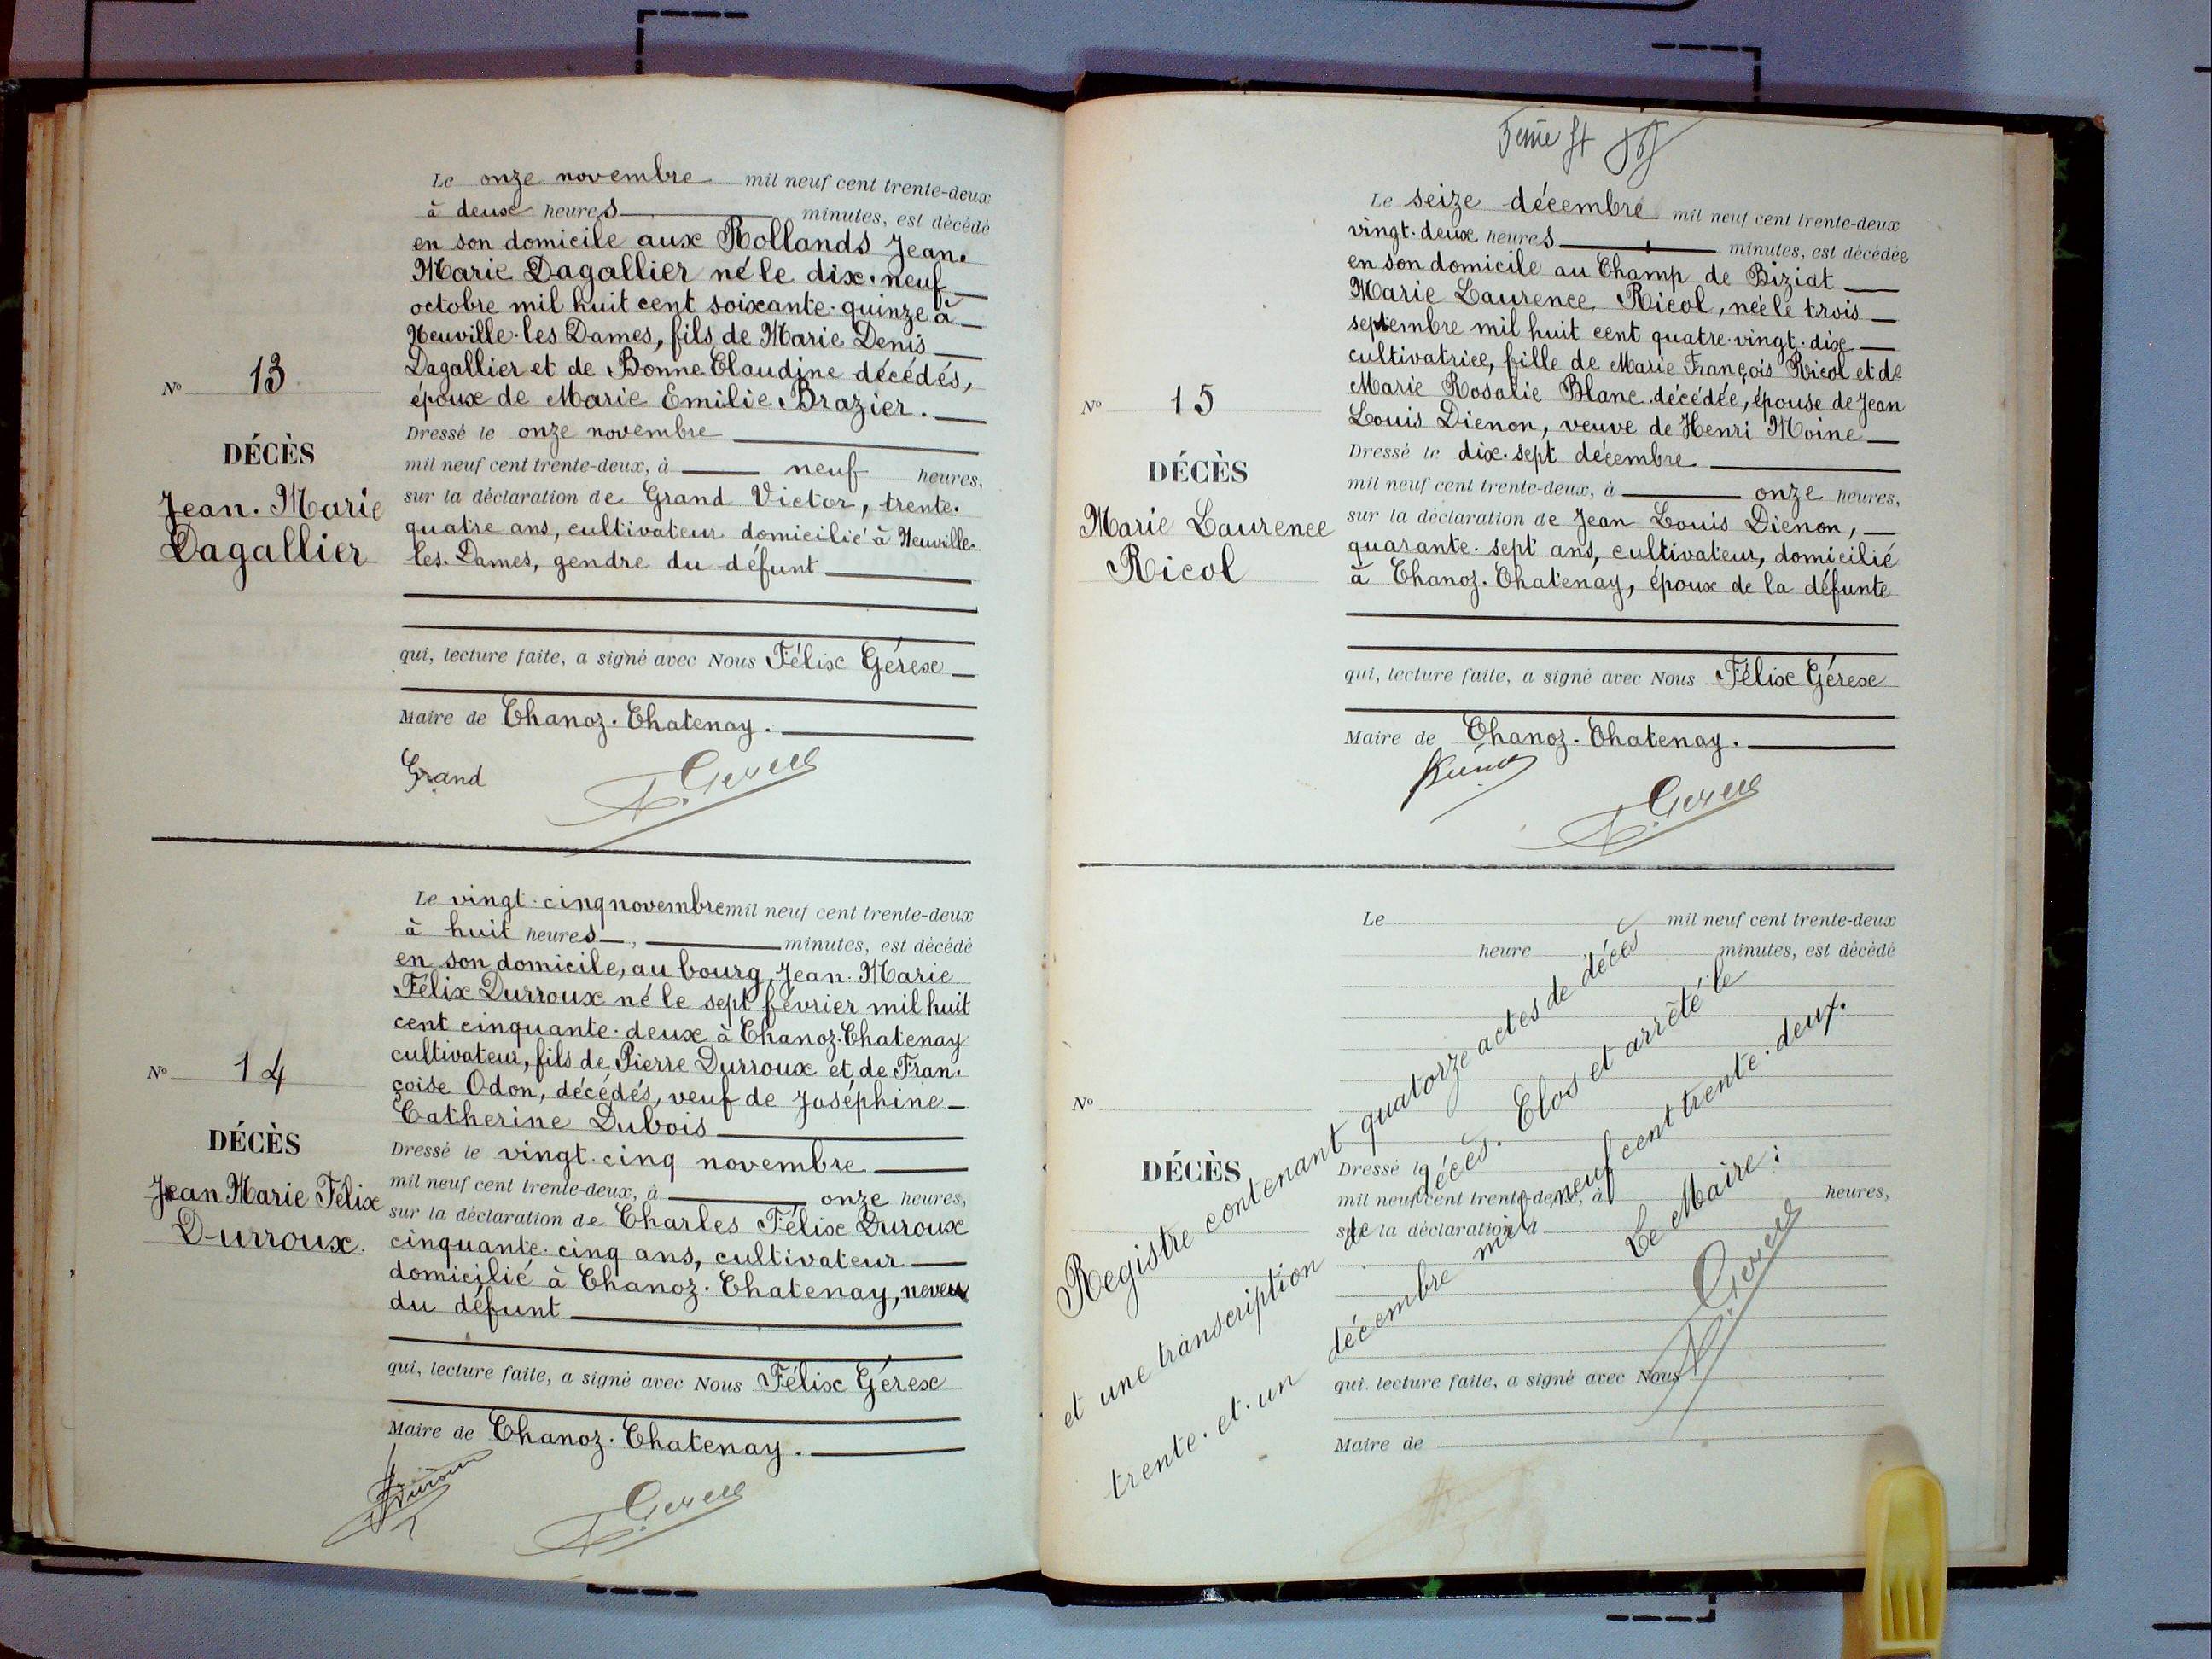 Le onze novembre mil neuf cent trente-deux
à deux heures minutes, est décédé
en son domicile aux Rollands Jean.
Marie Dagallier né le dix.neuf
octobre mil huit cent soixante.quinze à
Neuville.les Dames, fils de Marie Denis
Dagallier et de Bonne Claudine décédés,
époux de Marie Emilie Brazier.
Dressé le onze novembre
mil neuf cent trente-deux, à neuf heures,
sur la déclaration de Grand Victor, trente.
quatre ans, cultivateur domicilié à Neuville.
les.Dames, gendre du défunt
qui, lecture faite, a signé avec Nous Félix Gérex
Maire de Chanoz.Chatenay.
Grand
Nº 13
DÉCÈS
Jean.Marie
Dagallier
Le vingt.cinq novembre mil neuf cent trente-deux
à huit heures, minutes, est décédé
en son domicile, au bourg, Jean.Marie
Félix Durroux né le sept février mil huit
cent cinquante.deux à Chanoz.Chatenay
cultivateur, fils de Pierre Durroux et de Fran.
çoise Odon, décédés, veuf de Joséphine
Catherine Dubois
Dressé le vingt.cinq novembre
mil neuf cent trente-deux, à onze heures,
sur la déclaration de Charles Félix Duroux
cinquante.cinq ans, cultivateur
domicilié à Chanoz.Chatenay, neveu
du défunt
qui, lecture faite, a signé avec Nous Félix Gérex
Maire de Chanoz.Chatenay.
Nº 14
DÉCÈS
Jean Marie Félix
Durroux.
Le seize décembre mil neuf cent trente-deux
vingt.deux heures minutes, est décédée
en son domicile au Champ de Biziat
Marie Laurence Ricol, née le trois
septembre mil huit cent quatre.vingt.dix
cultivatrice, fille de Marie François Ricol et de
Marie Rosalie Blanc décédée, épouse de Jean
Louis Dienon, veuve de Henri Moine
Dressé le dix.sept décembre
mil neuf cent trente-deux, à onze heures,
sur la déclaration de Jean Louis Dienon,
quarante.sept ans, cultivateur, domicilié
à Chanoz.Chatenay, époux de la défunte
qui, lecture faite, a signé avec Nous Félix Gérex
Maire de Chanoz.Chatenay.
Nº 15
DÉCÈS
Marie Laurence
Ricol
Le mil neuf cent trente-deux
heure minutes, est décédé
Nº
DÉCÈS
Dressé le
mil neuf cent trente-deux, à heures,
sur la déclaration d
qui, lecture faite, a signé avec Nous
Maire de
Registre contenant quatorze actes de décès
et une transcription de décès. Clos et arrêté le
trente.et.un décembre mil neuf cent trente.deux.
Le Maire: